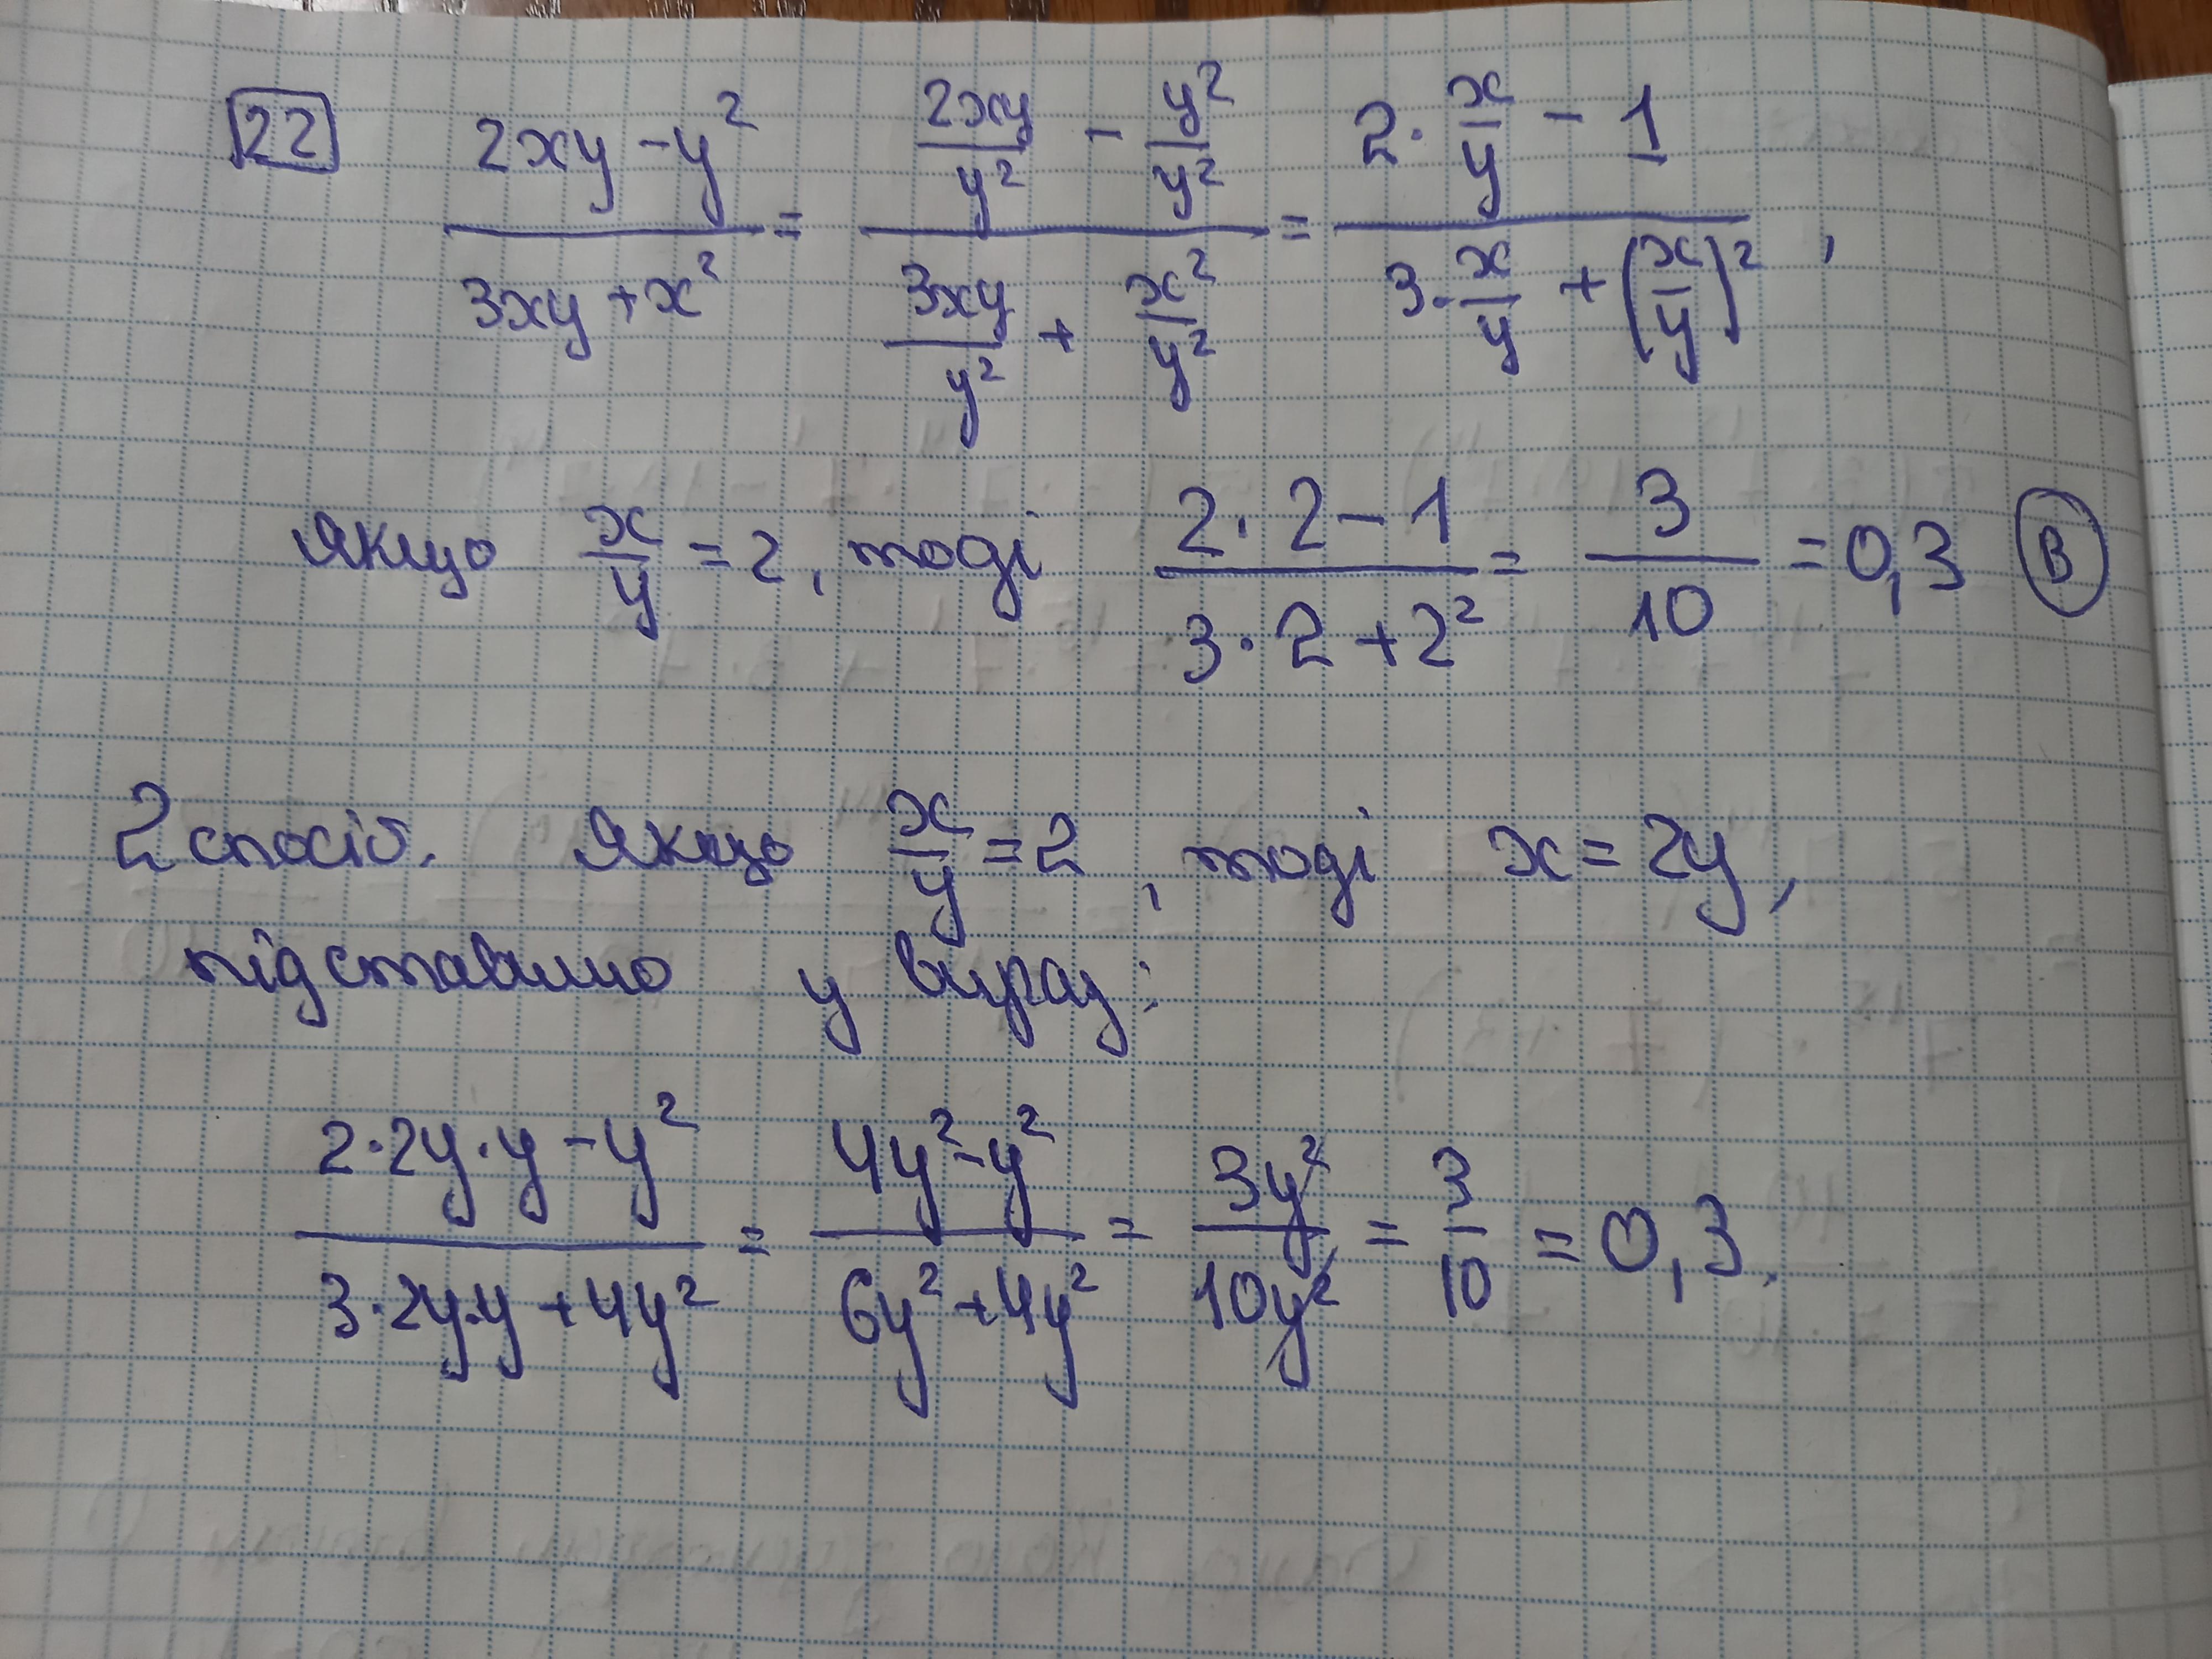 22 (2xy - y²)/(3xy + x²) = (2xy/y² - y²/y²)/(3xy/y² + x²/y²) = (2 · x/y - 1)/(3 · x/y + (x/y)²),
Якщо x/y = 2, тоді (2 · 2 - 1)/(3 · 2 + 2²) = 3/10 = 0,3 В
2 спосіб. Якщо x/y = 2, тоді x = 2y,
підставимо у вираз:
(2 · 2y · y - y²)/(3 · 2y · y + 4y²) = (4y² - y²)/(6y² + 4y²) = 3y²/10y² = 3/10 = 0,3.